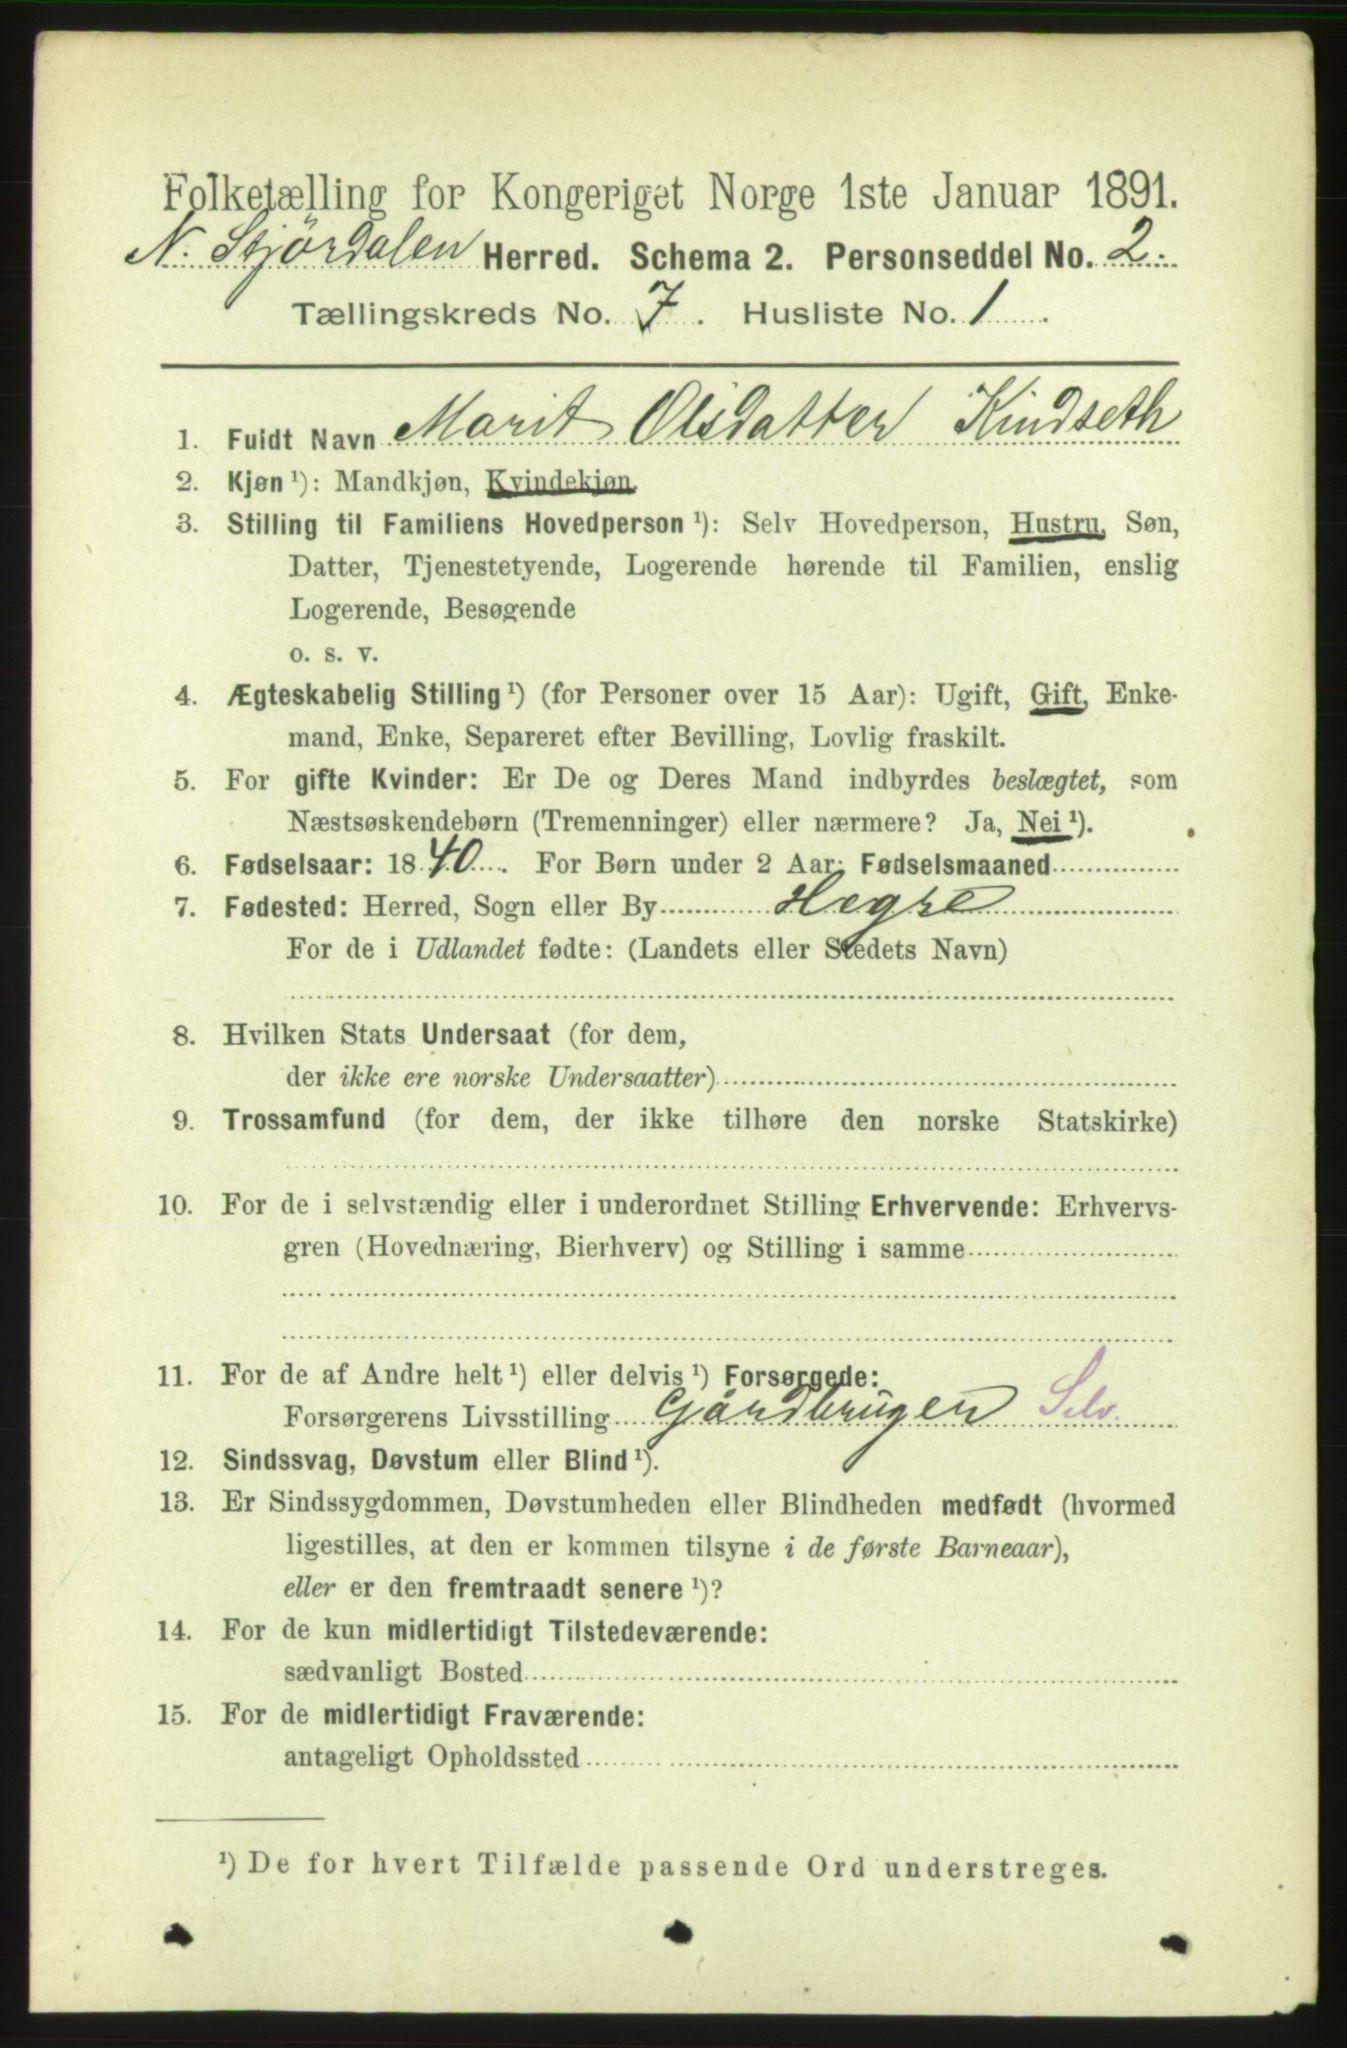 Folketælling for Kongeriget Norge 1ste Januar 1891.
N. Stjørdalen Herred. Schema 2. Personseddel No. 2.
Tællingskreds No. 7. Husliste No. 1.
1. Fuldt Navn Marit Olsdatter Kindseth
2. Kjøn ¹): Mandkjøn, Kvindekjøn
3. Stilling til Familiens Hovedperson ¹): Selv Hovedperson, Hustru, Søn,
Datter, Tjenestetyende, Logerende hørende til Familien, enslig
Logerende, Besøgende
o. s. v.
4. Ægteskabelig Stilling ¹) (for Personer over 15 Aar): Ugift, Gift, Enke-
mand, Enke, Separeret efter Bevilling, Lovlig fraskilt.
5. For gifte Kvinder: Er De og Deres Mand indbyrdes beslægtet, som
Næstsøskendebørn (Tremenninger) eller nærmere? Ja, Nei ¹).
6. Fødselsaar: 1840. For Børn under 2 Aar: Fødselsmaaned
7. Fødested: Herred, Sogn eller By Hegre
For de i Udlandet fødte: (Landets eller Stedets Navn)
8. Hvilken Stats Undersaat (for dem,
der ikke ere norske Undersaatter)
9. Trossamfund (for dem, der ikke tilhøre den norske Statskirke)
10. For de i selvstændig eller i underordnet Stilling Erhvervende: Erhvervs-
gren (Hovednæring, Bierhverv) og Stilling i samme
11. For de af Andre helt ¹) eller delvis ¹) Forsørgede:
Forsørgerens Livsstilling Gårdbruger Selv
12. Sindssvag, Døvstum eller Blind ¹).
13. Er Sindssygdommen, Døvstumheden eller Blindheden medfødt (hvormed
ligestilles, at den er kommen tilsyne i de første Barneaar),
eller er den fremtraadt senere ¹)?
14. For de kun midlertidigt Tilstedeværende:
sædvanligt Bosted
15. For de midlertidigt Fraværende:
antageligt Opholdssted
¹) De for hvert Tilfælde passende Ord understreges.